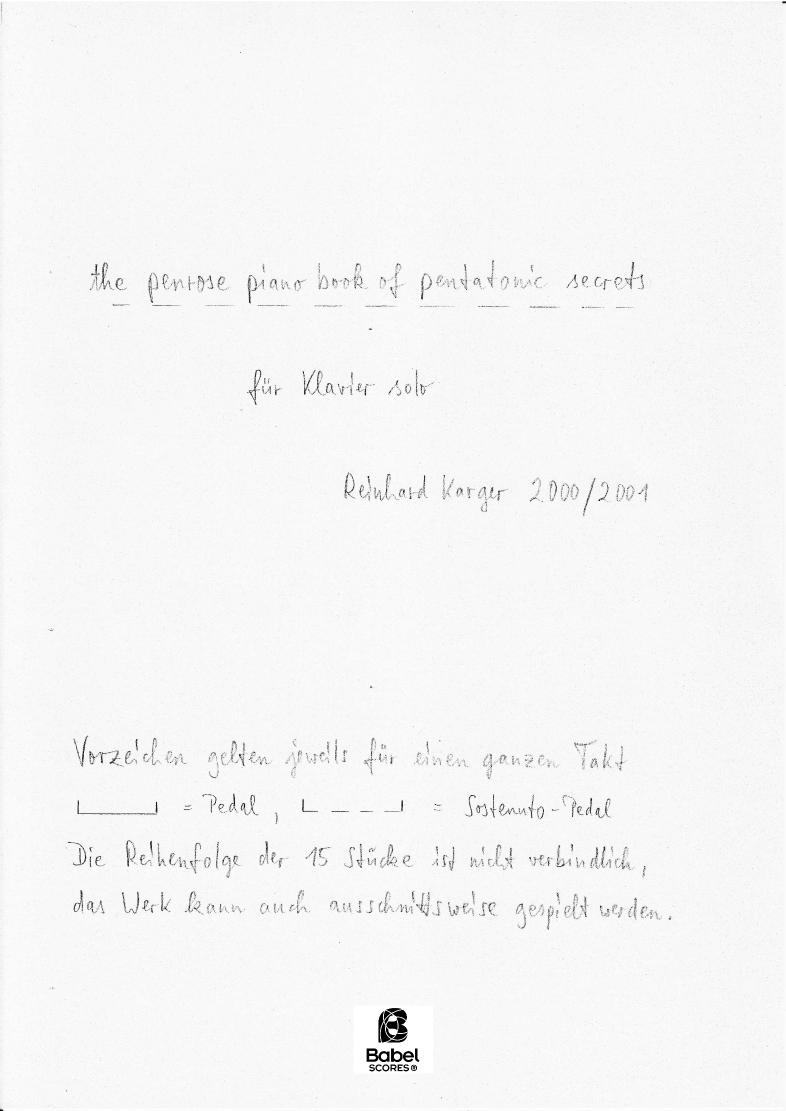 the penrose piano book of pentatonic secrets
für Klavier solo
Reinhard Karger 2000/2001
Vorzeichen gelten jeweils für einen ganzen Takt
= Pedal, = Sostenuto-Pedal
Die Reihenfolge der 15 Stücke ist nicht verbindlich,
das Werk kann auch ausschnittsweise gespielt werden.
Babel
SCORES®